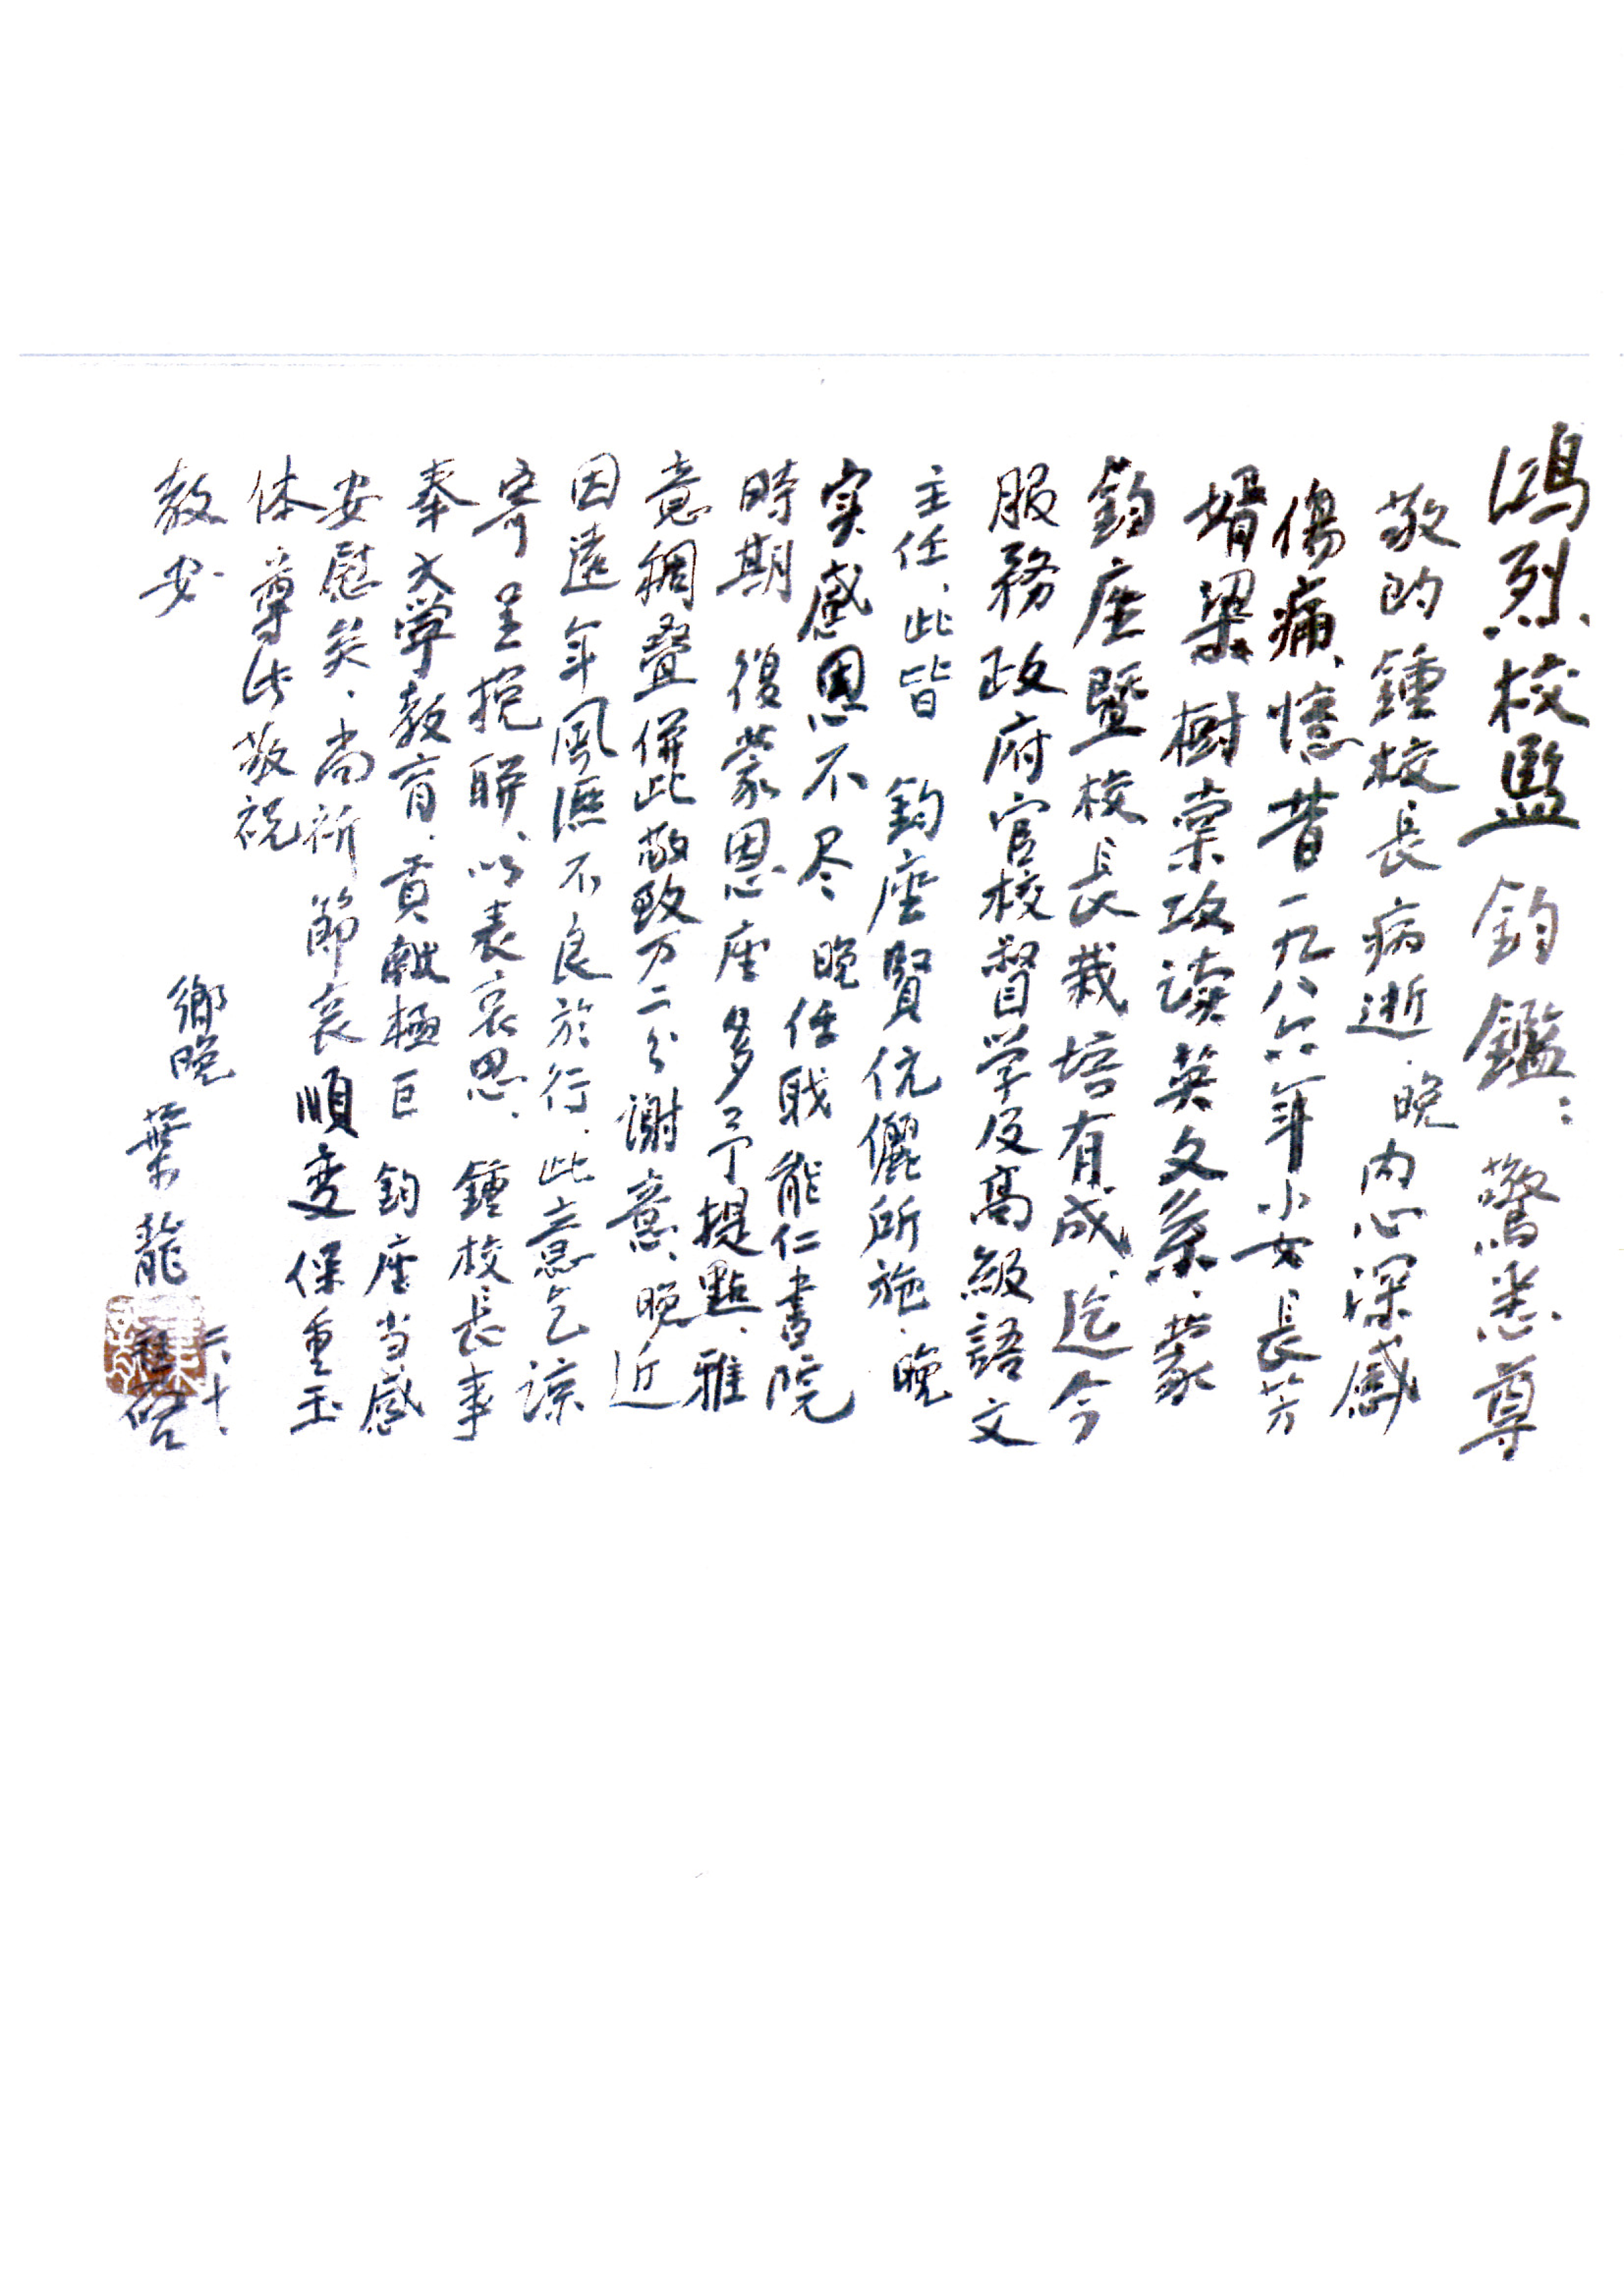 鴻烈校監 鈞鑑：驚悉尊
敬的鍾校長病逝、晚内心深感
傷痛、憶昔一九八六年小女長芳
婿梁樹棠攻读英文系、蒙
鈞座暨校長栽培有成、迄今
服務政府官校督学及高級語文
主任、此皆 鈞座賢伉儷所施、晚
实感恩不尽 晚任职能仁書院
時期 復蒙恩座多予提點、雅
意稠叠併此敬致万二分謝意、晚近
因遠年風湿不良於行、此意乞諒
寄呈挽联、以表哀思、鍾校長事
奉大学教育、貢献極巨 鈞座当感
安慰矣、尚祈節哀順变保重玉
体 尊此敬祝
教安
鄉晚 葉龍 謹啓
六、十、